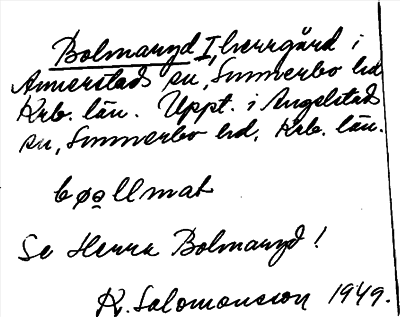 Bolmaryd I, herrgård i
Annerstads sn, Sunnerbo hd
Krb. län. Uppt. i Angelstads
sn, Sunnerbo hd, Krb. län.
bøo̲llmat
Se Herra Bolmaryd!
R. Salomonsson 1949.